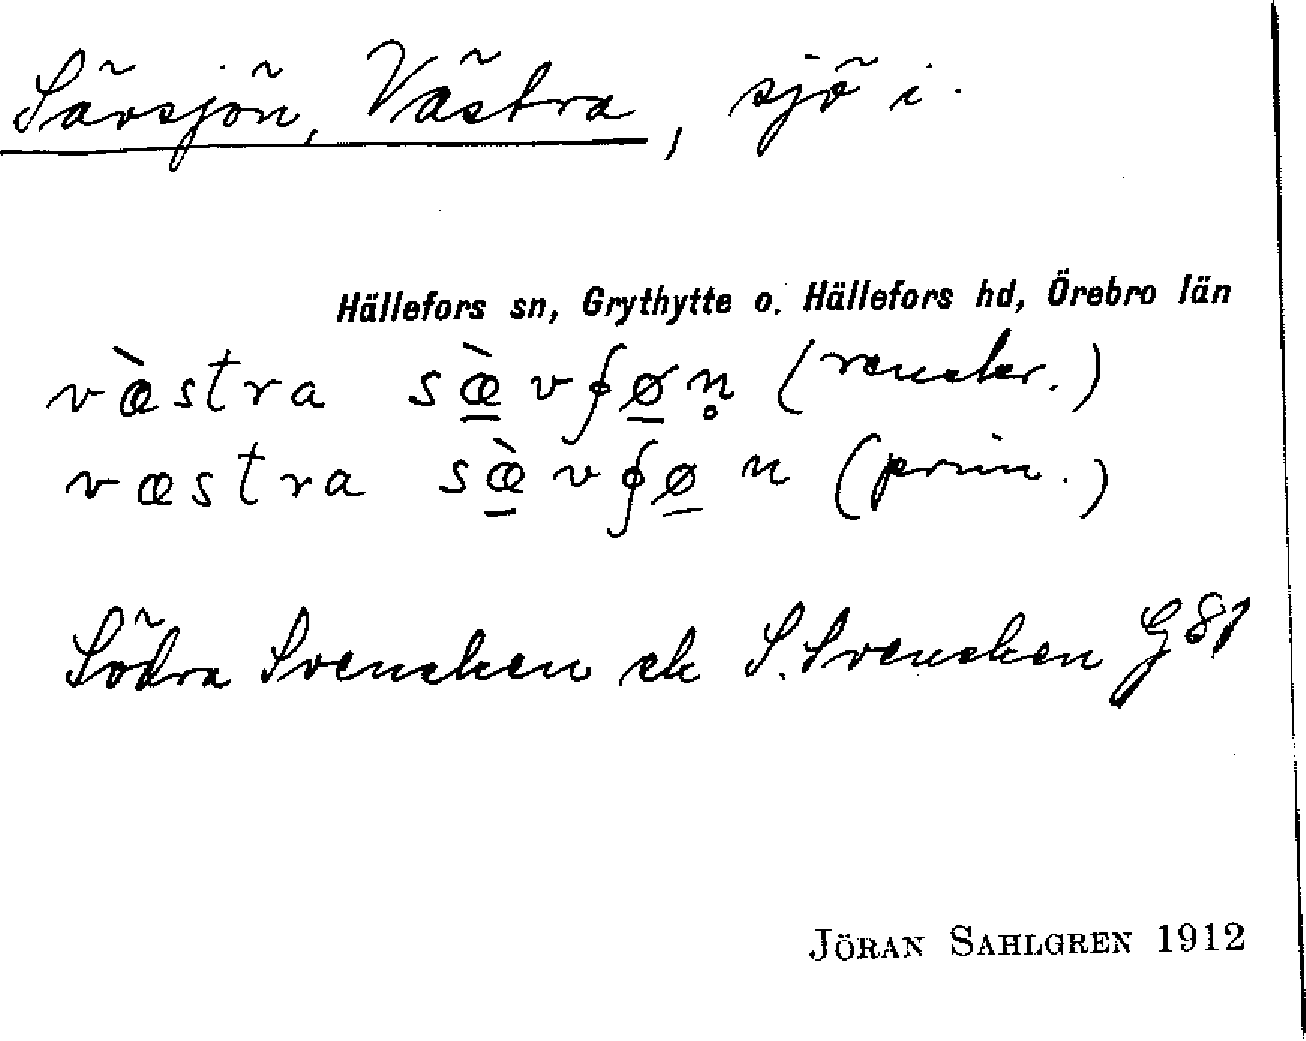 Sävsjön, Västra, sjö i.
Hällefors sn, Grythytte o. Hällefors hd, Örebro län
væ̀stra sæ̱̀vʄø̱n̥ (vensker.)
væstra sæ̱̀vʄø̱n (prim.)
Södra Svensken ek S. Svensken G 81
JÖRAN SAHLGREN 1912